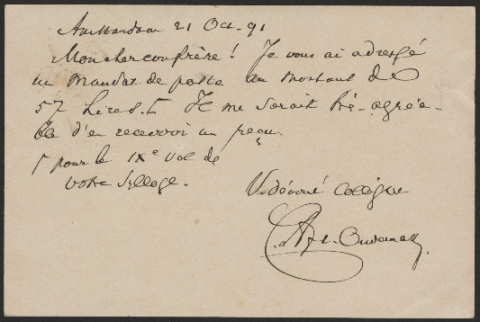 Amsterdam 21 Oct. 91
Mon cher confrère! Je vous ai adressé
un Mandat de poste au montant de
57 Lires.† Il me serait très-agréa-
ble d'en recevoir un reçu.
† pour le IXe vol de
votre Sylloge.
V. dévoué Collègue
C.A.J.A. Oudemans